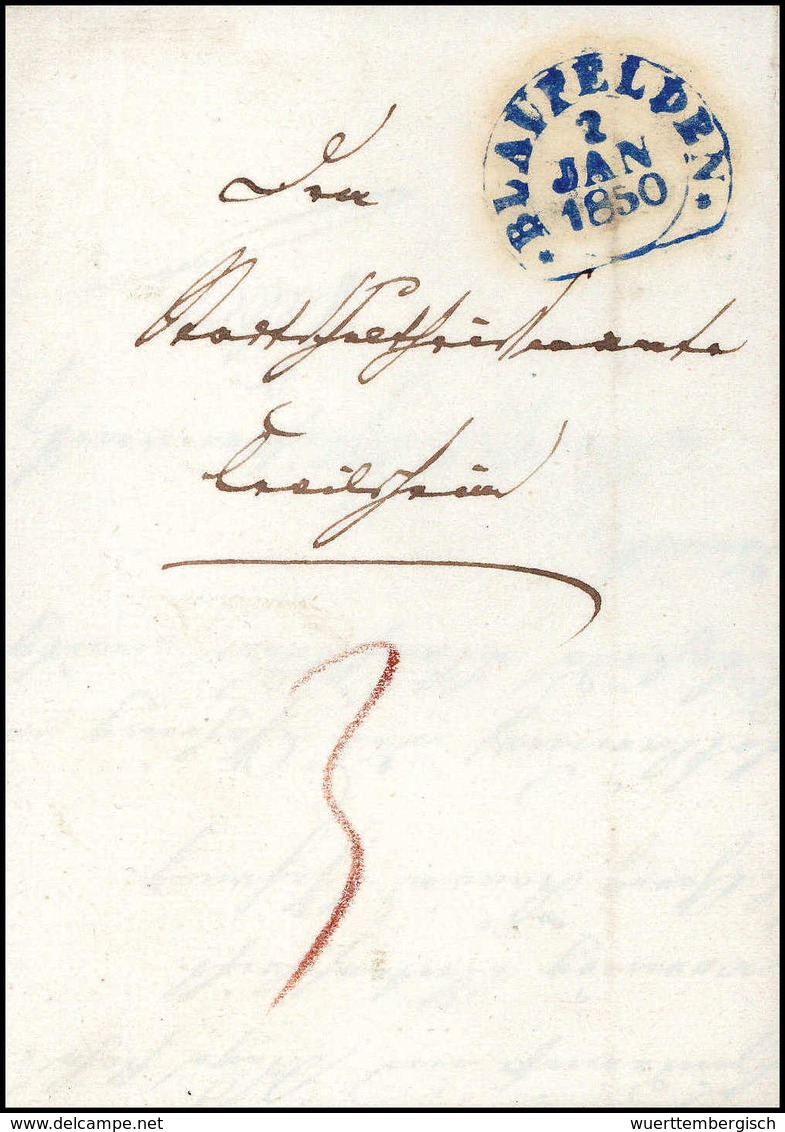 BLAUFELDEN
2
JAN
1850
Dem
Stadtschultheißenamte
Crailsheim
3
delcampe.net
wuerttembergisch